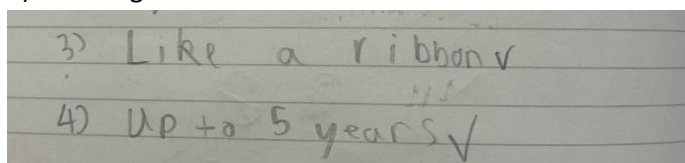 3) Like a ribbon ✓
4) Up to 5 years ✓